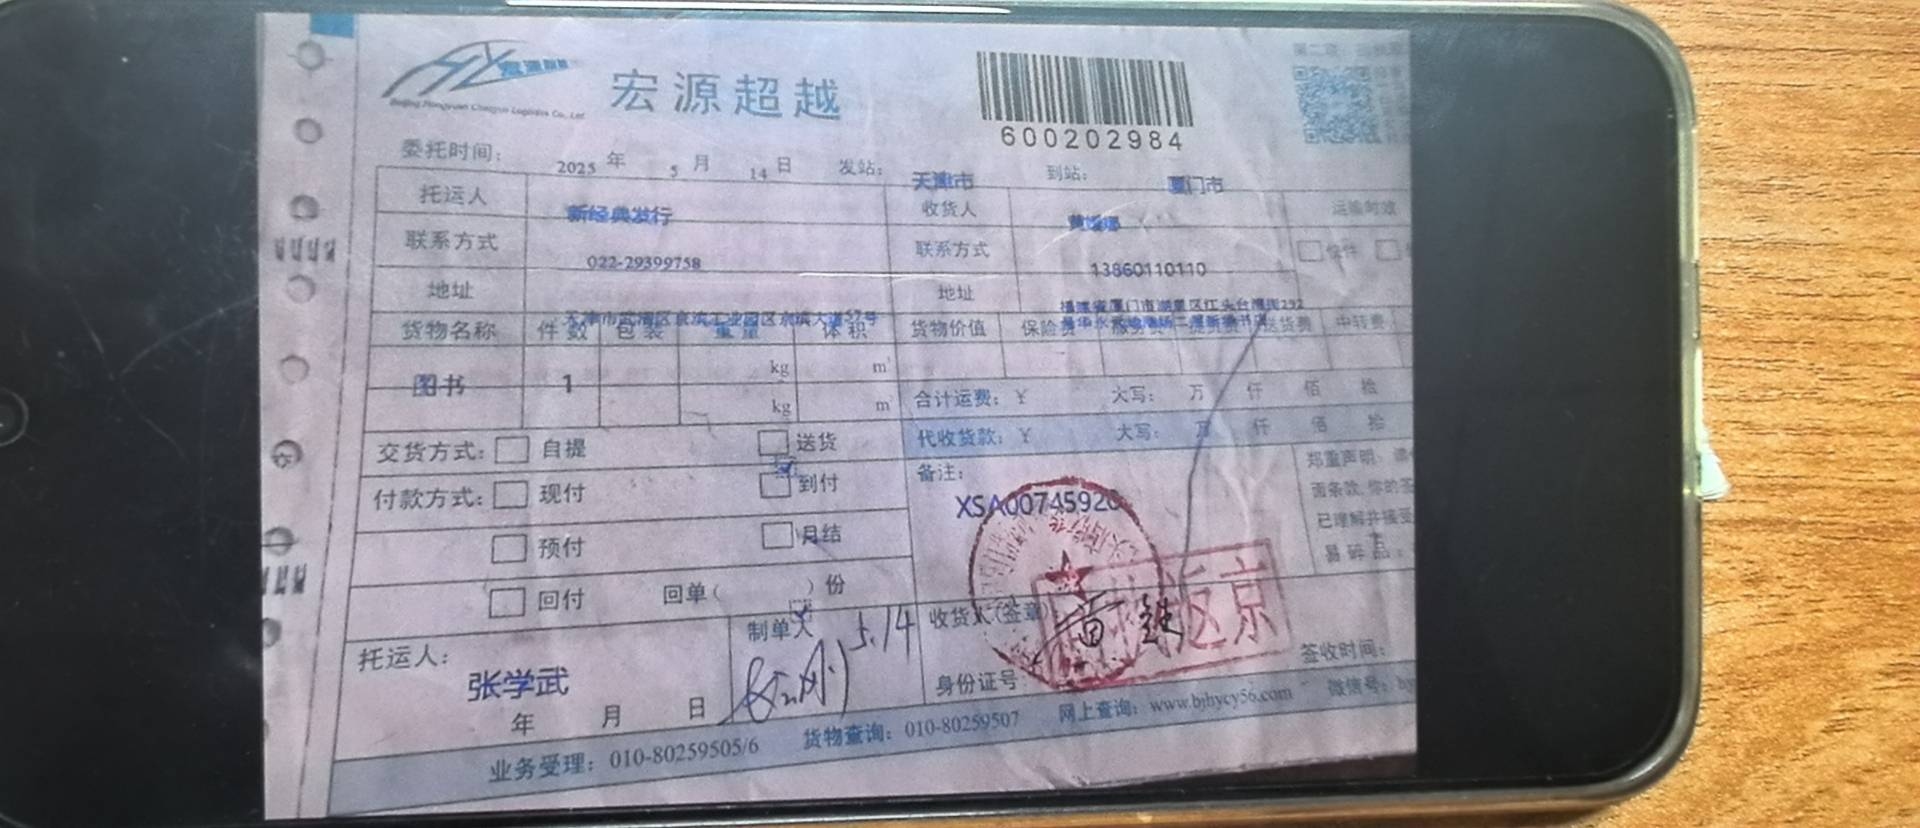 宏源超越
Beijing Hongyuan Chaoyue Logistics Co., Ltd.
宏源超越
600202984
委托时间: 2025 年 5 月 14 日 发站: 天津市 到站: 厦门市
托运人 新经典发行 收货人 运输时效
联系方式 022-29399758 联系方式 13860110110 快件
地址 天津市武清区京滨工业园区京滨大道57号 地址 福建省厦门市湖里区江头台湾街292
货物名称 件数 包装 重量 体积 货物价值 保险费 送货费 中转费
图书 1 kg m³
kg m³
合计运费: ¥ 大写: 万 仟 佰 拾
代收货款: ¥ 大写: 万 仟 佰 拾
交货方式: 自提 送货
付款方式: 现付 到付
预付 月结
回付 回单( )份
备注:
XSA00745920
郑重声明:
面条款,你的签
已理解并接受
易碎品
托运人: 张学武
年 月 日
制单人
5.14
收货人(签章)
返京
身份证号
签收时间:
业务受理: 010-80259505/6 货物查询: 010-80259507 网上查询: www.bjhycy56.com 微信号: